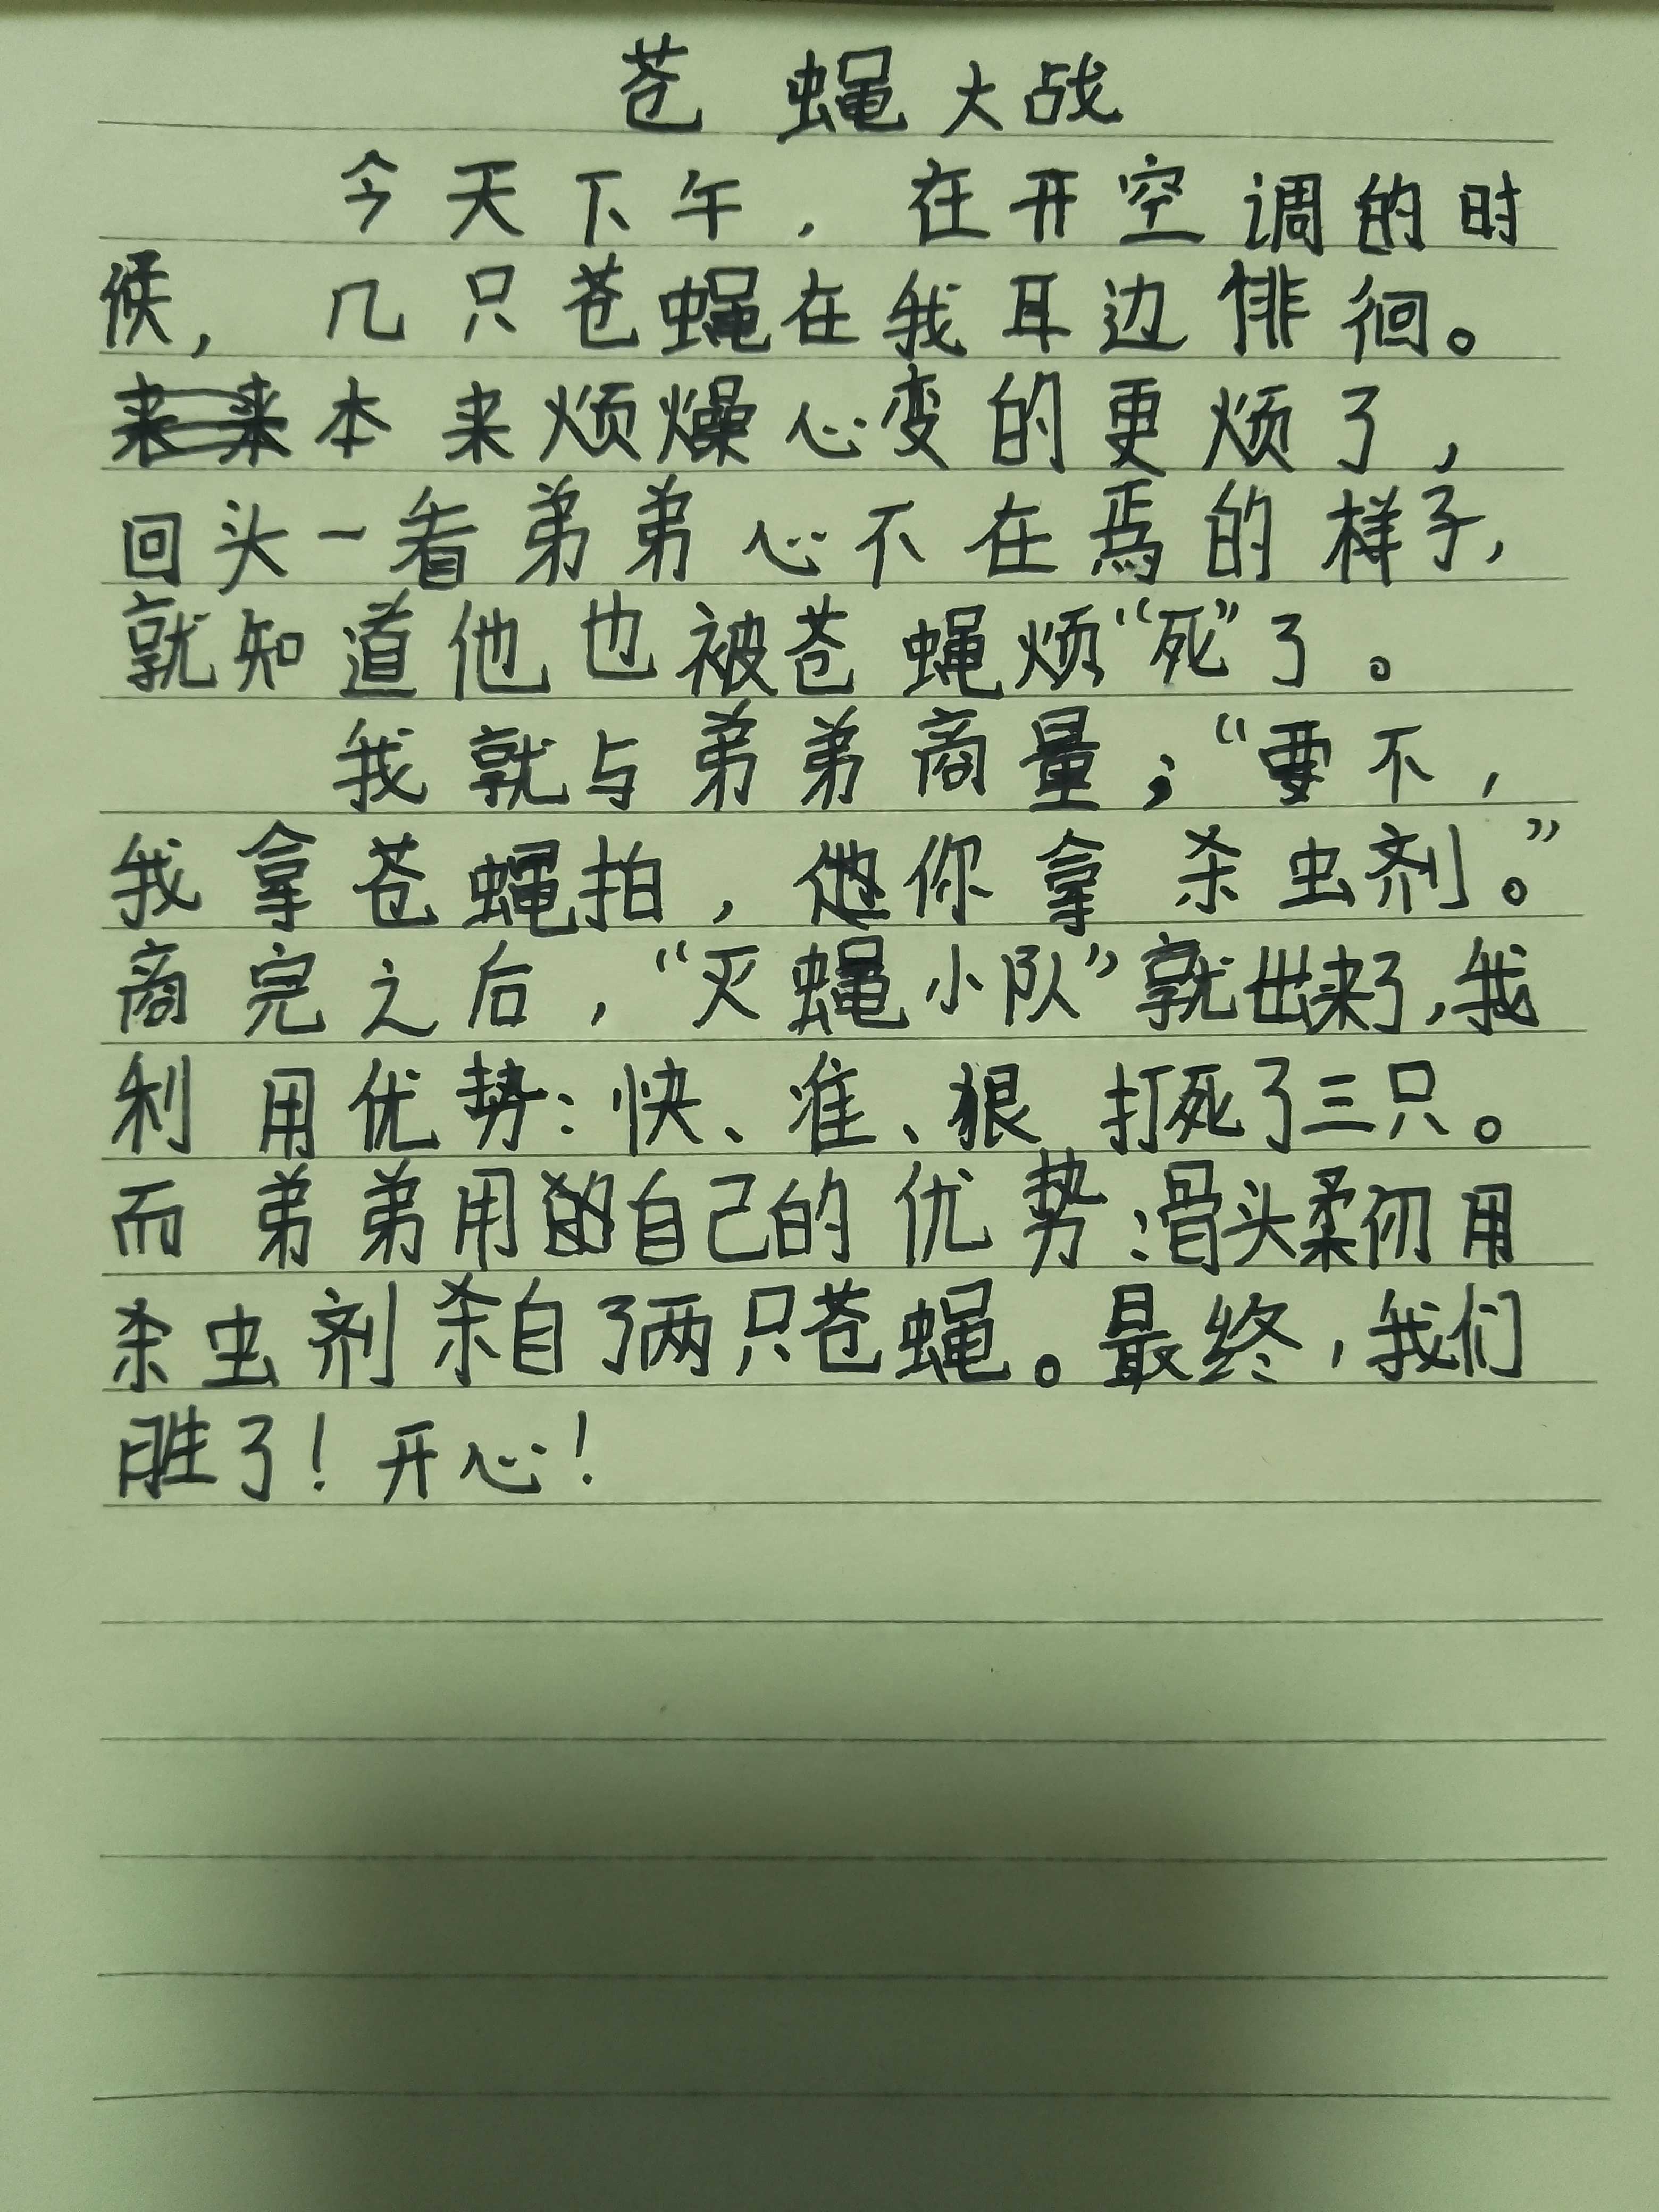 苍蝇大战
今天下午，在开空调的时
候，几只苍蝇在我耳边徘徊。
本来烦燥心变的更烦了，
回头一看弟弟心不在焉的样子，
就知道他也被苍蝇烦“死”了。
我就与弟弟商量；“要不，
我拿苍蝇拍，你拿杀虫剂。”
商完之后，“灭蝇小队”就出来了，我
利用优势：快、准、狠打死了三只。
而弟弟用自己的优势：骨头柔仞用
杀虫剂杀自了两只苍蝇。最终，我们
胜了！开心！